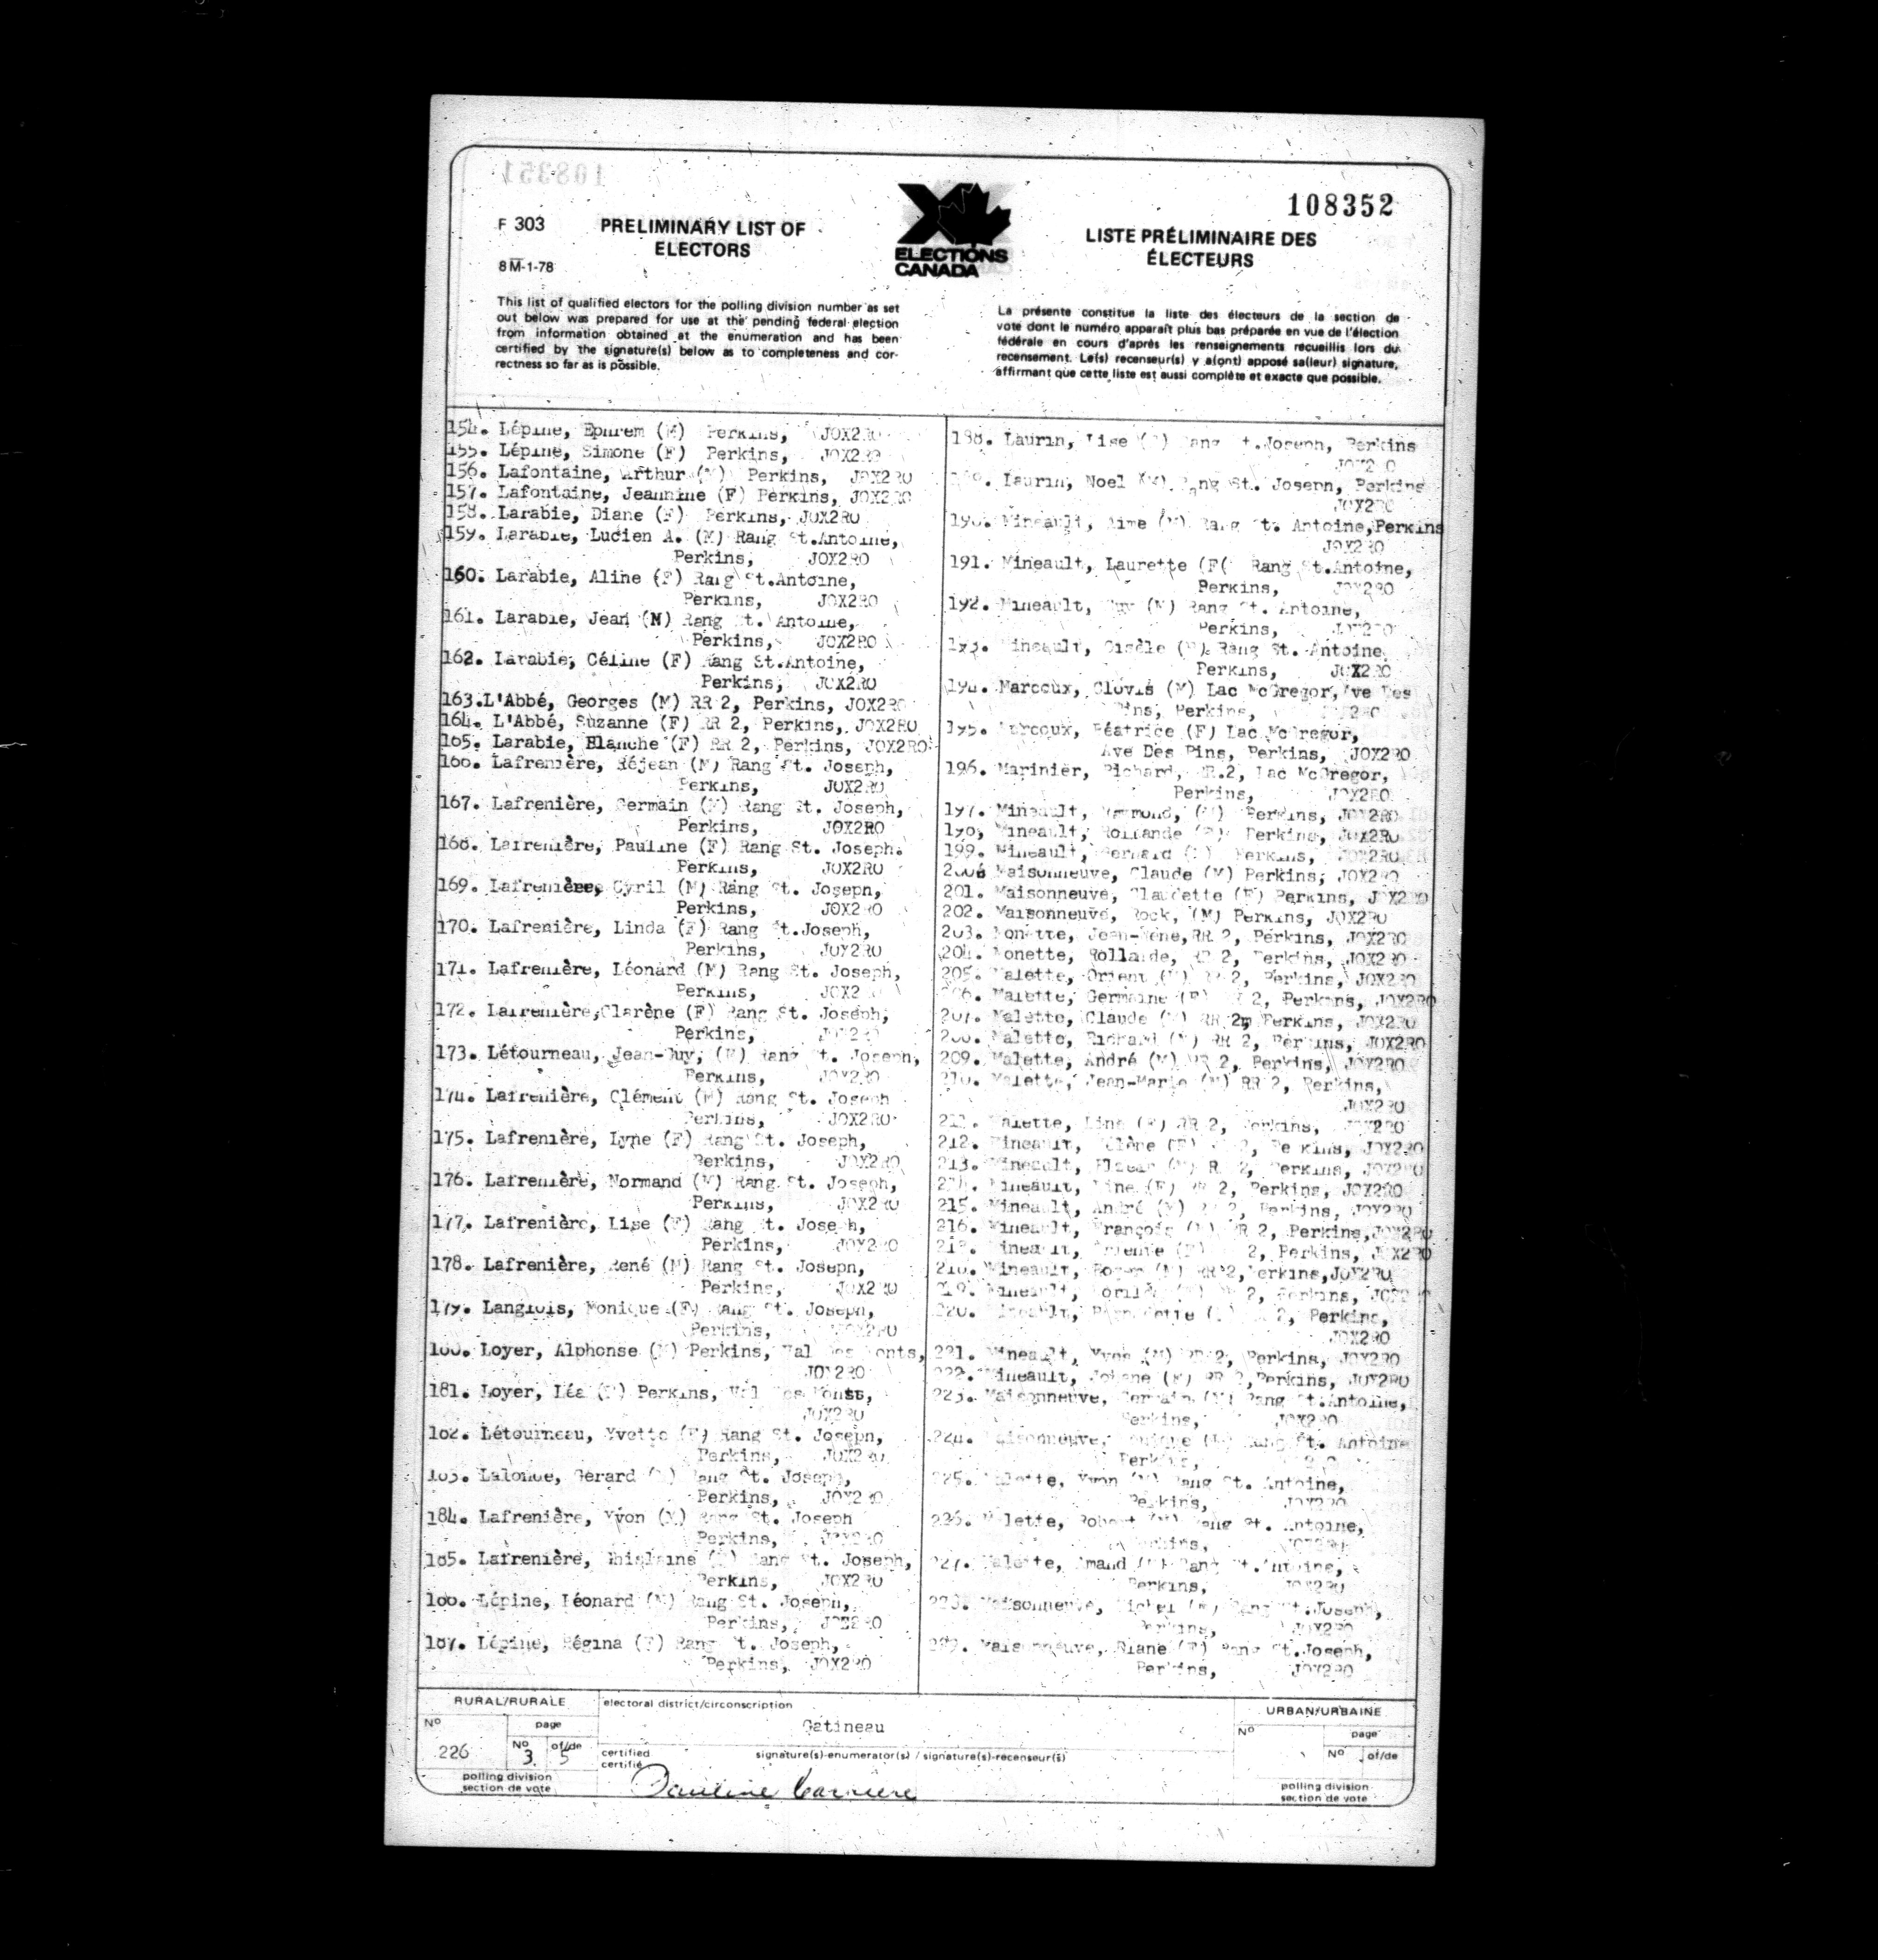 108352
F 303
PRELIMINARY LIST OF
ELECTORS
8 M-1-78
ELECTIONS
CANADA
LISTE PRÉLIMINAIRE DES
ÉLECTEURS
This list of qualified electors for the polling division number as set
out below was prepared for use at the pending federal election
from information obtained at the enumeration and has been
certified by the signature(s) below as to completeness and cor-
rectness so far as is possible.
La présente constitue la liste des électeurs de la section de
vote dont le numéro apparaît plus bas préparée en vue de l'élection
fédérale en cours d'après les renseignements recueillis lors du
recensement. Le(s) recenseur(s) y a(ont) apposé sa(leur) signature,
affirmant que cette liste est aussi complète et exacte que possible.
154. Lépine, Ephrem (M) Perkins, JOX2RO
155. Lépine, Simone (F) Perkins, JOX2RO
156. Lafontaine, Arthur (M) Perkins, JOX2RO
157. Lafontaine, Jeannine (F) Perkins, JOX2RO
158. Larabie, Diane (F) Perkins, JOX2RO
159. Larabie, Lucien A. (M) Rang St.Antoine,
Perkins, JOX2RO
160. Larabie, Aline (F) Rang St.Antoine,
Perkins, JOX2RO
161. Larabie, Jean (M) Rang St. Antoine,
Perkins, JOX2RO
162. Larabie, Céline (F) Rang St.Antoine,
Perkins, JOX2RO
163.L'Abbé, Georges (M) RR 2, Perkins, JOX2RO
164. L'Abbé, Suzanne (F) RR 2, Perkins, JOX2RO
165. Larabie, Blanche (F) RR 2, Perkins, JOX2RO
166. Lafrenière, Réjean (M) Rang St. Joseph,
Perkins, JOX2RO
167. Lafrenière, Germain (M) Rang St. Joseph,
Perkins, JOX2RO
168. Lafrenière, Pauline (F) Rang St. Joseph.
Perkins, JOX2RO
169. Lafrenière, Cyril (M) Rang St. Joseph,
Perkins, JOX2RO
170. Lafrenière, Linda (F) Rang St.Joseph,
Perkins, JOX2RO
171. Lafrenière, Léonard (M) Rang St. Joseph,
Perkins, JOX2
172. Lafrenière,Clarène (F) Rang St. Joseph,
Perkins,
173. Létourneau, Jean-Guy, (M) Rang St. Joseph,
Perkins, JOX2RO
174. Lafrenière, Clément (M) Rang St. Joseph
Perkins, JOX2RO
175. Lafrenière, Lyne (F) Rang St. Joseph,
Perkins, JOX2RO
176. Lafrenière, Normand (M) Rang St. Joseph,
Perkins, JOX2RO
177. Lafrenière, Lise (F) Rang St. Joseph,
Perkins, JOX2RO
178. Lafrenière, René (M) Rang St. Joseph,
Perkins, JOX2RO
179. Langlois, Monique (F) Rang St. Joseph,
Perkins, JOX2RO
180. Loyer, Alphonse (M) Perkins, Val Des Monts,
JOX2RO
181. Loyer, Léa (F) Perkins, Val Des Monts,
JOX2RO
182. Létourneau, Yvette (F) Rang St. Joseph,
Perkins, JOX2RO
183. Lalonde, Gérard (M) Rang St. Joseph,
Perkins, JOX2RO
184. Lafrenière, Yvon (M) Rang St. Joseph
Perkins, JOX2RO
185. Lafrenière, Ghislaine (F) Rang St. Joseph,
Perkins, JOX2RO
186. Lépine, Léonard (M) Rang St. Joseph,
Perkins, JOX2RO
187. Lépine, Régina (F) Rang St. Joseph,
Perkins, JOX2RO
188. Laurin, Lise (F) Rang St.Joseph, Perkins
JOX2RO
189. Laurin, Noel (M) Rang St. Joseph, Perkins
JOX2RO
190. Mineault, Aime (M) Rang St. Antoine,Perkins
JOX2RO
191. Mineault, Laurette (F( Rang St.Antoine,
Perkins, JOX2RO
192. Mineault, Guy (M) Rang St. Antoine,
Perkins, JOX2RO
193. Mineault, Gisèle (F) Rang St. Antoine,
Perkins, JOX2RO
194. Marcoux, Clovis (M) Lac McGregor, Ave Des
Pins, Perkins, JOX2RO
195. Marcoux, Béatrice (F) Lac McGregor,
Ave Des Pins, Perkins, JOX2RO
196. Marinier, Richard, RR.2, Lac McGregor,
Perkins, JOX2RO
197. Mineault, (M) Perkins, JOX2RO
198, Mineault, Rollande (F) Perkins, JOX2RO
199. Mineault, Bernard (M) Perkins, JOX2RO
200 Maisonneuve, Claude (M) Perkins, JOX2RO
201. Maisonneuve, Claudette (F) Perkins, JOX2RO
202. Maisonneuve, Rock, (M) Perkins, JOX2RO
203. Monette, Jean-Rene,RR 2, Perkins, JOX2RO
204. Monette, Rollande, RR 2, Perkins, JOX2RO
205. Malette, Orient (M) RR 2, Perkins, JOX2RO
206. Malette, Germaine (F) RR 2, Perkins, JOX2RO
207. Malette, Claude (M) RR 2m Perkins, JOX2RO
208. Malette, Richard (M) RR 2, Perkins, JOX2RO
209. Malette, André (M) RR 2, Perkins, JOX2RO
210. Malette, Jean-Marie (M) RR 2, Perkins,
JOX2RO
211. Malette, Line (F) RR 2, Perkins, JOX2RO
212. Mineault, (F) RR 2, Perkins, JOX2RO
213. Mineault, (M) RR 2, Perkins, JOX2RO
214. Mineault, Line (F) RR 2, Perkins, JOX2RO
215. Mineault, André (M) RR 2, Perkins, JOX2RO
216. Mineault, François (M) RR 2, Perkins,JOX2RO
Mineault, 2, Perkins, JOX2RO
Mineault, Roger (M) RR 2,Perkins,JOX2RO
219. Mineault, 2, Perkins, JOX2RO
220. Mineault, 2, Perkins,
JOX2RO
221. Mineault, Yvon (M) RR 2, Perkins, JOX2RO
222. Mineault, RR 2,Perkins, JOX2RO
223. Maisonneuve, Germain (M) Rang St.Antoine,
Perkins, JOX2RO
224. Maisonneuve, Rang St. Antoine
Perkins,
225. Malette, Yvon (M) Rang St. Antoine,
Perkins, JOX2RO
226. Malette, Robert (M) Rang St. Antoine,
Perkins, JOX2RO
227. Malette, Rang St.Antoine,
Perkins, JOX2RO
228. Maisonneuve, Michel (M) Rang St.Joseph,
Perkins, JOX2RO
229. Maisonneuve, Diane (F) Rang St.Joseph,
Perkins, JOX2RO
RURAL/RURALE
No
226
page
No of/de
3 5
polling division
section de vote
electoral district/circonscription
Gatineau
certified
certifié
signature(s)-enumerator(s) / signature(s)-recenseur(s)
Pauline Carriere
URBAN/URBAINE
No
page
No of/de
polling division
section de vote